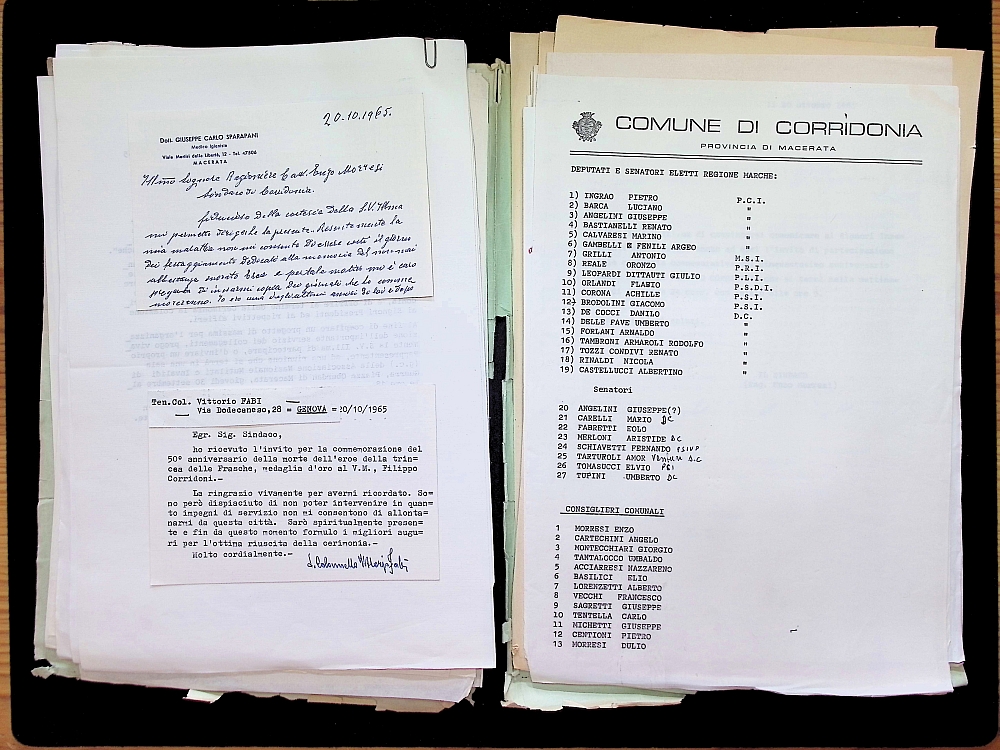 20.10.1965.
Dott. GIUSEPPE CARLO SPARAPANI
Medico Igienista
Viale Martiri della Libertà, 12 - Tel. 47506
MACERATA
Ill.mo Signore Ragioniere Cav. Enzo Morresi
Sindaco di Corridonia.
fiducioso della cortesia della S.V. Ill.ma
mi permetto dirigerle la presente. la
mia malattia non mi consente di essere costì il giorno
dei festeggiamenti dedicati alla memoria del
Eroe e pertale motivo mi è caro
pregarla di inviarmi copia dei giornali che lo comme
moreranno. Io ero
Ten.Col. Vittorio FABI
Via Dodecaneso,28 = GENOVA = 20/10/1965
Egr. Sig. Sindaco,
ho ricevuto l'invito per la commemorazione del
50° anniversario della morte dell'eroe della trin=
cea delle Frasche, medaglia d'oro al V.M., Filippo
Corridoni.-
La ringrazio vivamente per avermi ricordato. So=
no però dispiaciuto di non poter intervenire in quan=
to impegni di servizio non mi consentono di allonta=
narmi da questa città. Sarò spiritualmente presen=
te e fin da questo momento formulo i migliori augu=
ri per l'ottima riuscita della cerimonia.-
Molto cordialmente.-
T. Colonnello Vittorio Fabi
COMUNE DI CORRIDONIA
PROVINCIA DI MACERATA
DEPUTATI E SENATORI ELETTI REGIONE MARCHE:
1) INGRAO PIETRO P.C.I.
2) BARCA LUCIANO "
3) ANGELINI GIUSEPPE "
4) BASTIANELLI RENATO "
5) CALVARESI MARINO "
6) GAMBELLI E FENILI ARGEO "
7) GRILLI ANTONIO M.S.I.
8) REALE ORONZO P.R.I.
9) LEOPARDI DITTAUTI GIULIO P.L.I.
10) ORLANDI FLAVIO P.S.D.I.
11) CORONA ACHILLE P.S.I.
12) BRODOLINI GIACOMO P.S.I.
13) DE COCCI DANILO D.C.
14) DELLE FAVE UMBERTO "
15) FORLANI ARNALDO "
16) TAMBRONI ARMAROLI RODOLFO "
17) TOZZI CONDIVI RENATO "
18) RINALDI NICOLA "
19) CASTELLUCCI ALBERTINO "
Senatori
20 ANGELINI GIUSEPPE(?)
21 CARELLI MARIO DC
22 FABRETTI EOLO
23 MERLONI ARISTIDE DC
24 SCHIAVETTI FERNANDO PSIUP
25 TARTUROLI AMOR Ventura D.C
26 TOMASUCCI ELVIO PCI
27 TUPINI UMBERTO DC
CONSIGLIERI COMUNALI
1 MORRESI ENZO
2 CARTECHINI ANGELO
3 MONTECCHIARI GIORGIO
4 TANTALOCCO UMBALDO
5 ACCIARRESI NAZZARENO
6 BASILICI ELIO
7 LORENZETTI ALBERTO
8 VECCHI FRANCESCO
9 SAGRETTI GIUSEPPE
10 TENTELLA CARLO
11 MICHETTI GIUSEPPE
12 CENTIONI PIETRO
13 MORRESI DULIO